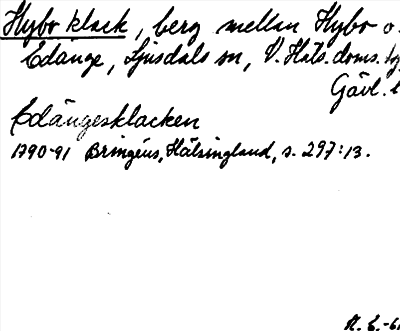 Hybo klack, berg mellan Hybo o.
Edänge, Ljusdals sn, V. Häls. doms.
Gävl. l
Edängesklacken
1790-91 Bringéus, Hälsingland, s. 297:13.